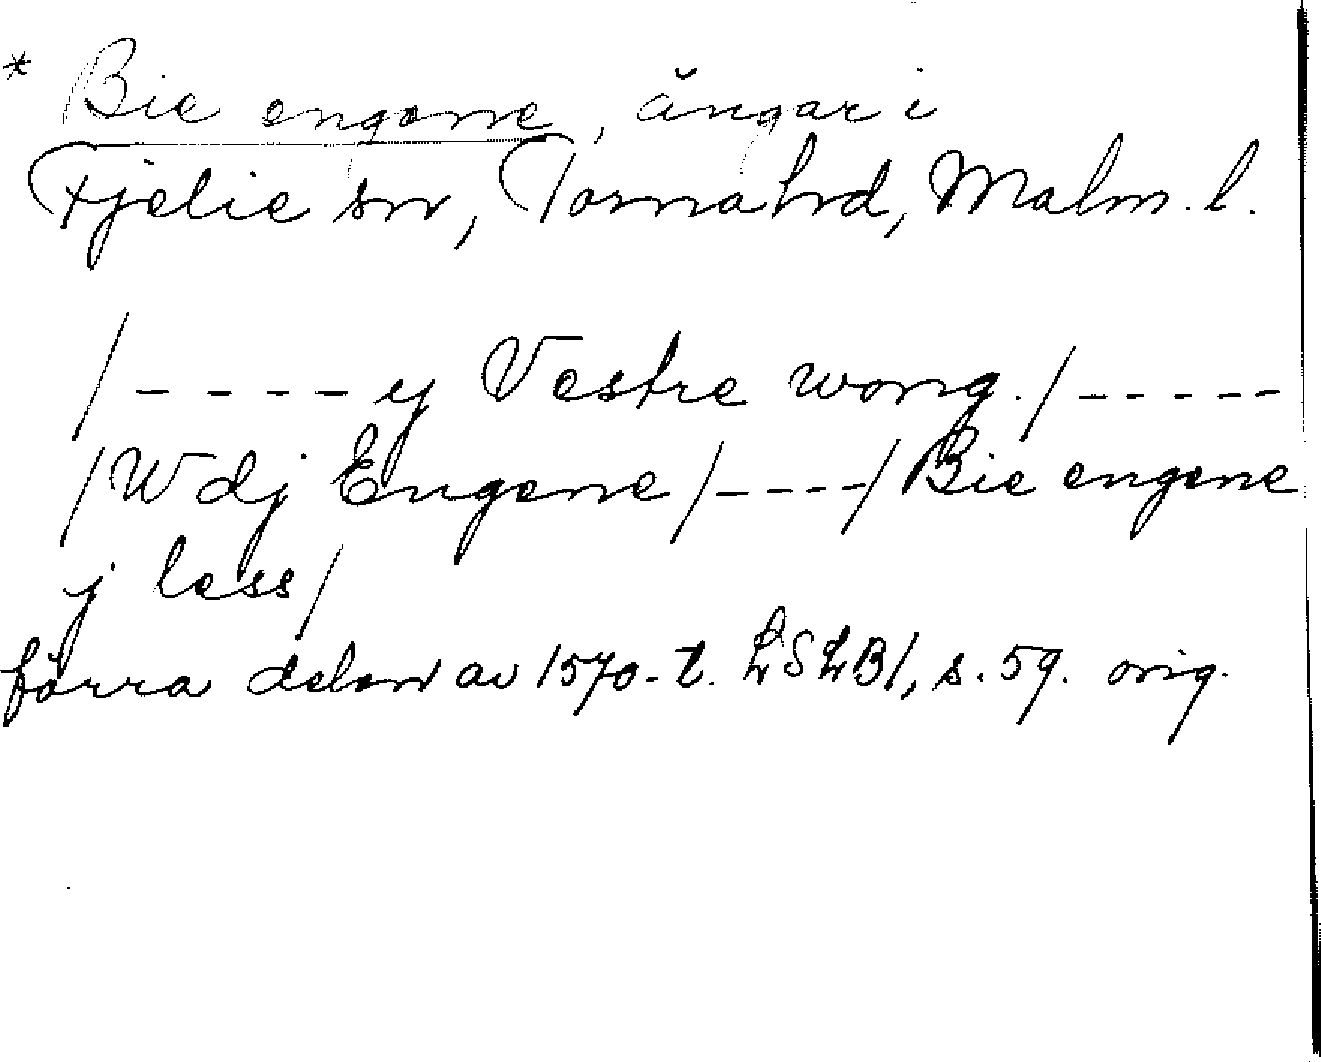 * Bie engene, ängar i
Fjelie sn, Torna hd, Malm. l.
/ - - - - y Vestre wong. / - - - - -
/ W dj Engene / - - - - / Bie engene
j less /
förra delen av 1570-t. LSLB1, s. 59. orig.